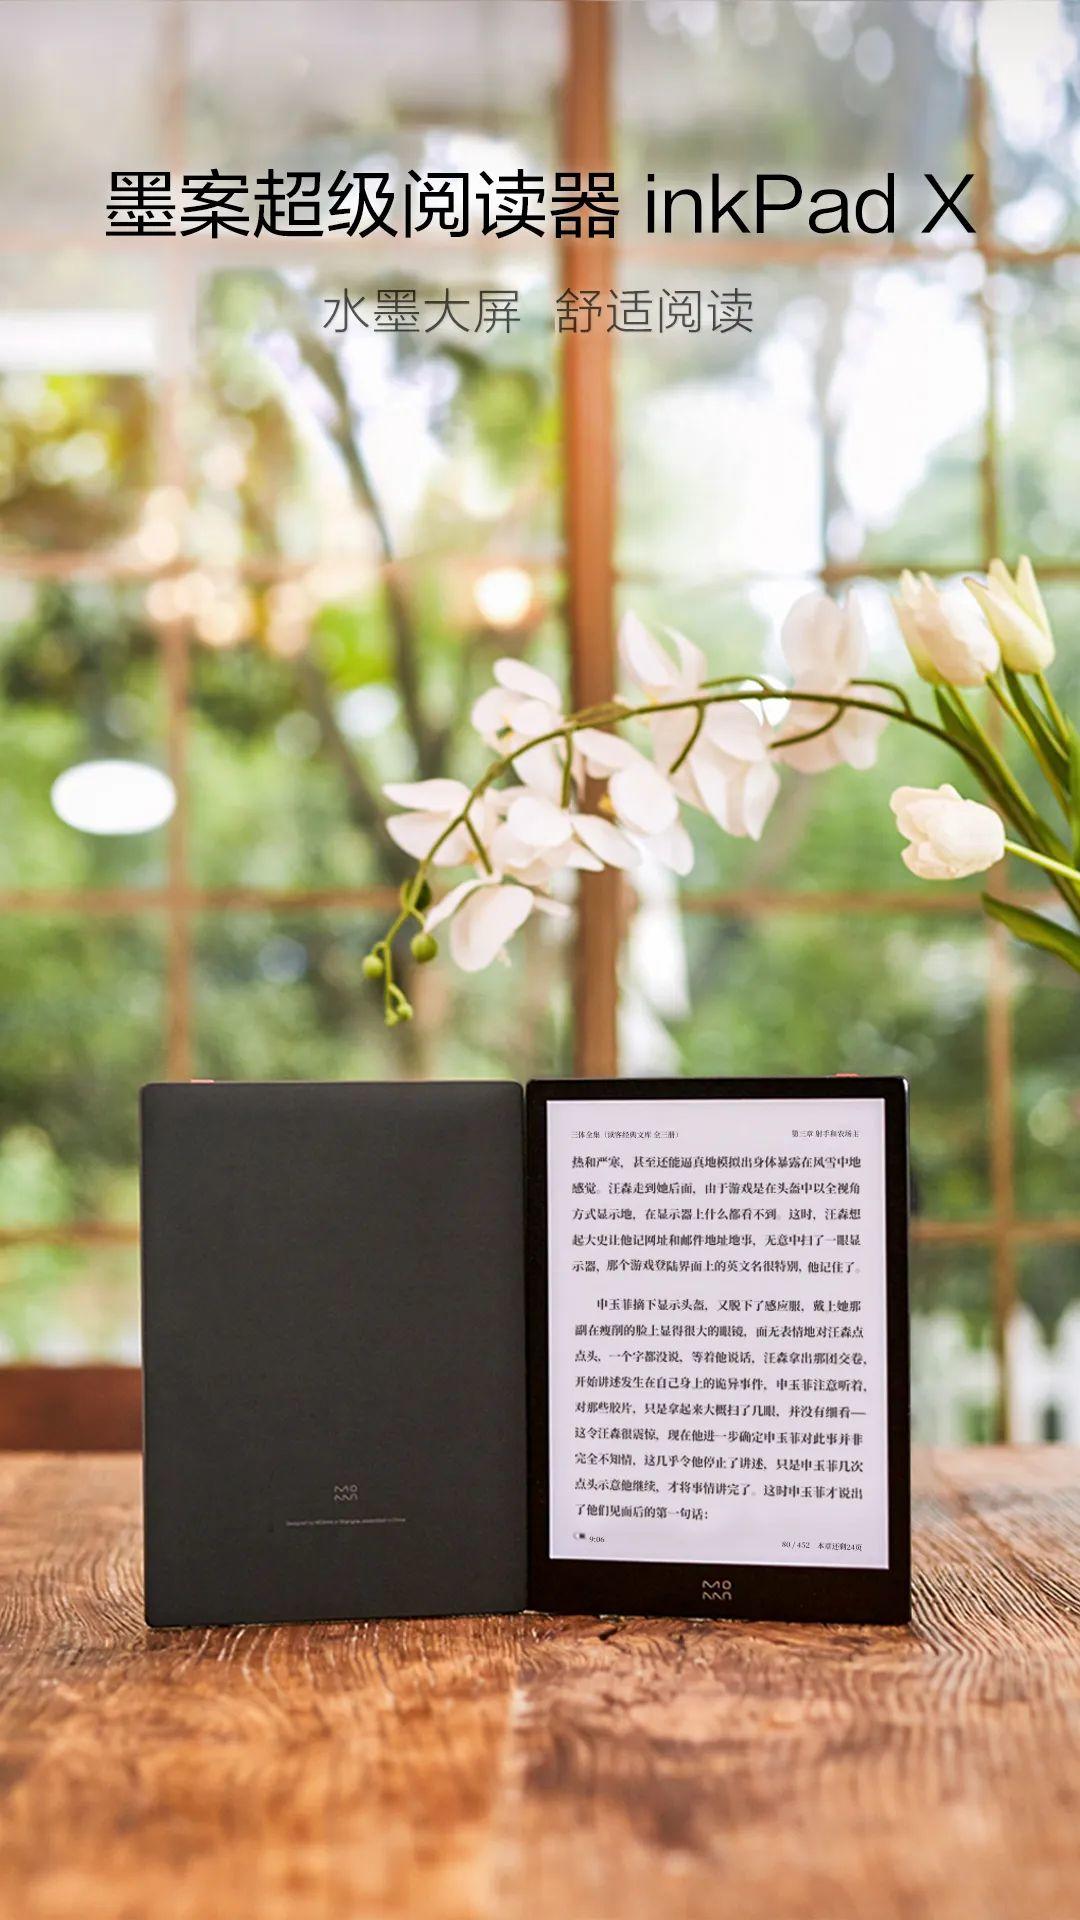 墨案超级阅读器 inkPad X
水墨大屏 舒适阅读
三体全集（读客经典文库 全三册） 第三章 射手和农场主
热和严寒，甚至还能逼真地模拟出身体暴露在风雪中地
感觉。汪淼走到她后面，由于游戏是在头盔中以全视角
方式显示地，在显示器上什么都看不到。这时，汪淼想
起大史让他记网址和邮件地址地事，无意中扫了一眼显
示器，那个游戏登陆界面上的英文名很特别，他记住了。
申玉菲摘下显示头盔，又脱下了感应服，戴上她那
副在瘦削的脸上显得很大的眼镜，面无表情地对汪淼点
点头，一个字都没说，等着他说话，汪淼拿出那团交卷，
开始讲述发生在自己身上的诡异事件，申玉菲注意听着，
对那些胶片，只是拿起来大概扫了几眼，并没有细看—
这令汪淼很震惊，现在他进一步确定申玉菲对此事并非
完全不知情，这几乎令他停止了讲述，只是申玉菲几次
点头示意他继续，才将事情讲完了。这时申玉菲才说出
了他们见面后的第一句话：
9:06 80 / 452 本章还剩24页